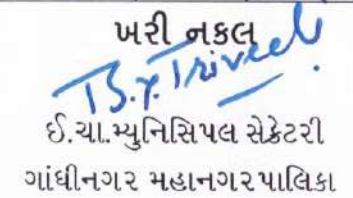 ખરી નકલ
B.X.Trivedi
ઈ.ચા.મ્યુનિસિપલ સેક્રેટરી
ગાંધીનગર મહાનગરપાલિકા